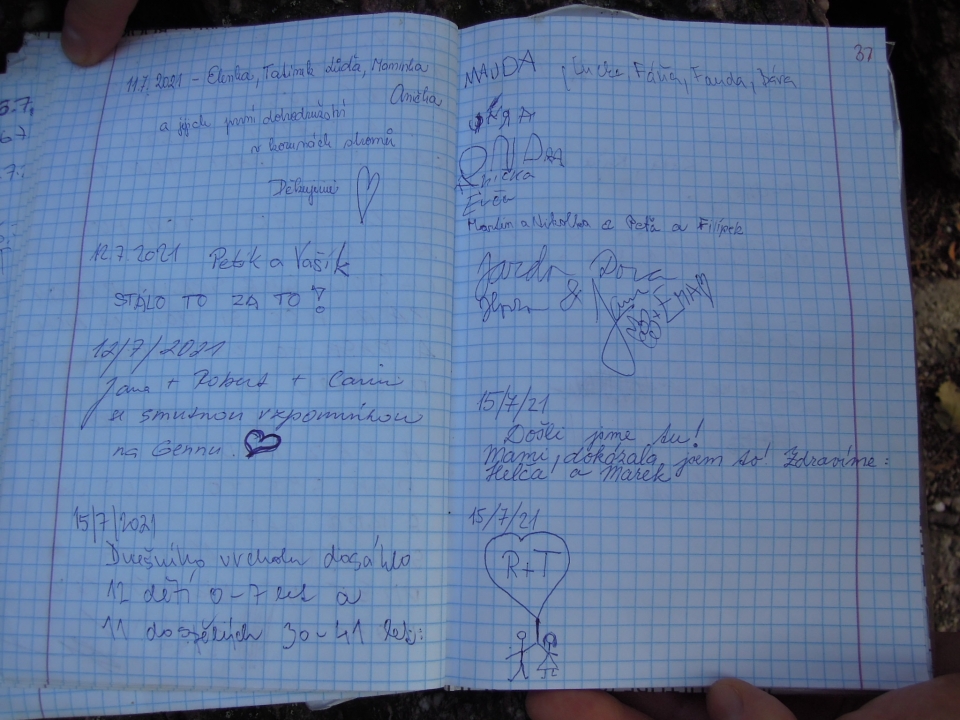 11.7.2021 - Elenka, Tatínek Luďa, Maminka
Anělka
a jejich první dobrodružství
v korunách stromů
Děkujeme
12.7.2021 Petřík a Vašík
STÁLO TO ZA TO!
12/7/2021
Jana + Robert + Carin
se smutnou vzpomínkou
na Gennu.
15/7/2021
Dnešního vrcholu dosáhlo
12 dětí 0-7 let a
11 dospělých 30-41 let:
37
MAJDA Fáňa, Fanda, Bára
Anička
Martin a Nikolka a Peťa a Filípek
Jarda Dora
&
+EMAN
15/7/21
Došli jsme tu!
Mami, dokázala jsem to! Zdravíme:
Helča a Marek
15/7/21
R+T